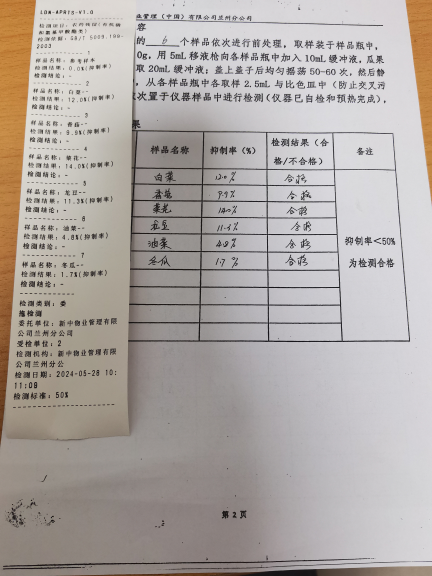 LDW-APRTS-V1.0
检测项目: 农药残留(有机磷
和氨基甲酸酯类)
检测依据: GB/T 5009.199-
2003
1
样品名称: 参考样本
检测结果: 0.0%(抑制率)
检测结论: -
2
样品名称: 白菜-
检测结果: 12.0%(抑制率)
检测结论: -
3
样品名称: 卷菇-
检测结果: 9.9%(抑制率)
检测结论: -
4
样品名称: 菜花-
检测结果: 14.0%(抑制率)
检测结论: -
5
样品名称: 龙豆-
检测结果: 11.3%(抑制率)
检测结论: -
6
样品名称: 油菜-
检测结果: 4.8%(抑制率)
检测结论: -
7
样品名称: 冬瓜-
检测结果: 1.7%(抑制率)
检测结论: -
检测类别: 委
拖检测
委托单位: 新中物业管理有限
公司兰州分公司
受检单位: 2
检测机构: 新中物业管理有限
公司兰州分公
检测日期: 2024-05-28 10:
11:09
检测标准: 50%
业管理（中国）有限公司兰州分公司
容
的 6 个样品依次进行前处理，取样装于样品瓶中，
0g，用 5mL 移液枪向各样品瓶中加入 10mL 缓冲液，瓜果
取 20mL 缓冲液；盖上盖子后均匀摇荡 50-60 次，然后静
，从各样品瓶中各取样 2.5mL 与比色皿中（防止交叉污
次置于仪器样品中进行检测（仪器已自检和预热完成），
果
样品名称 抑制率（%） 检测结果（合格/不合格） 备注
白菜 12.0% 合格
9.9% 合格
菜花 14.0% 合格
龙豆 11.3% 合格
油菜 4.8% 合格
冬瓜 1.7 % 合格
抑制率<50%
为检测合格
第 2 页